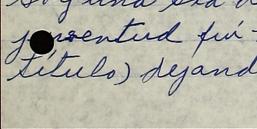 juventud fui-
título) dejand